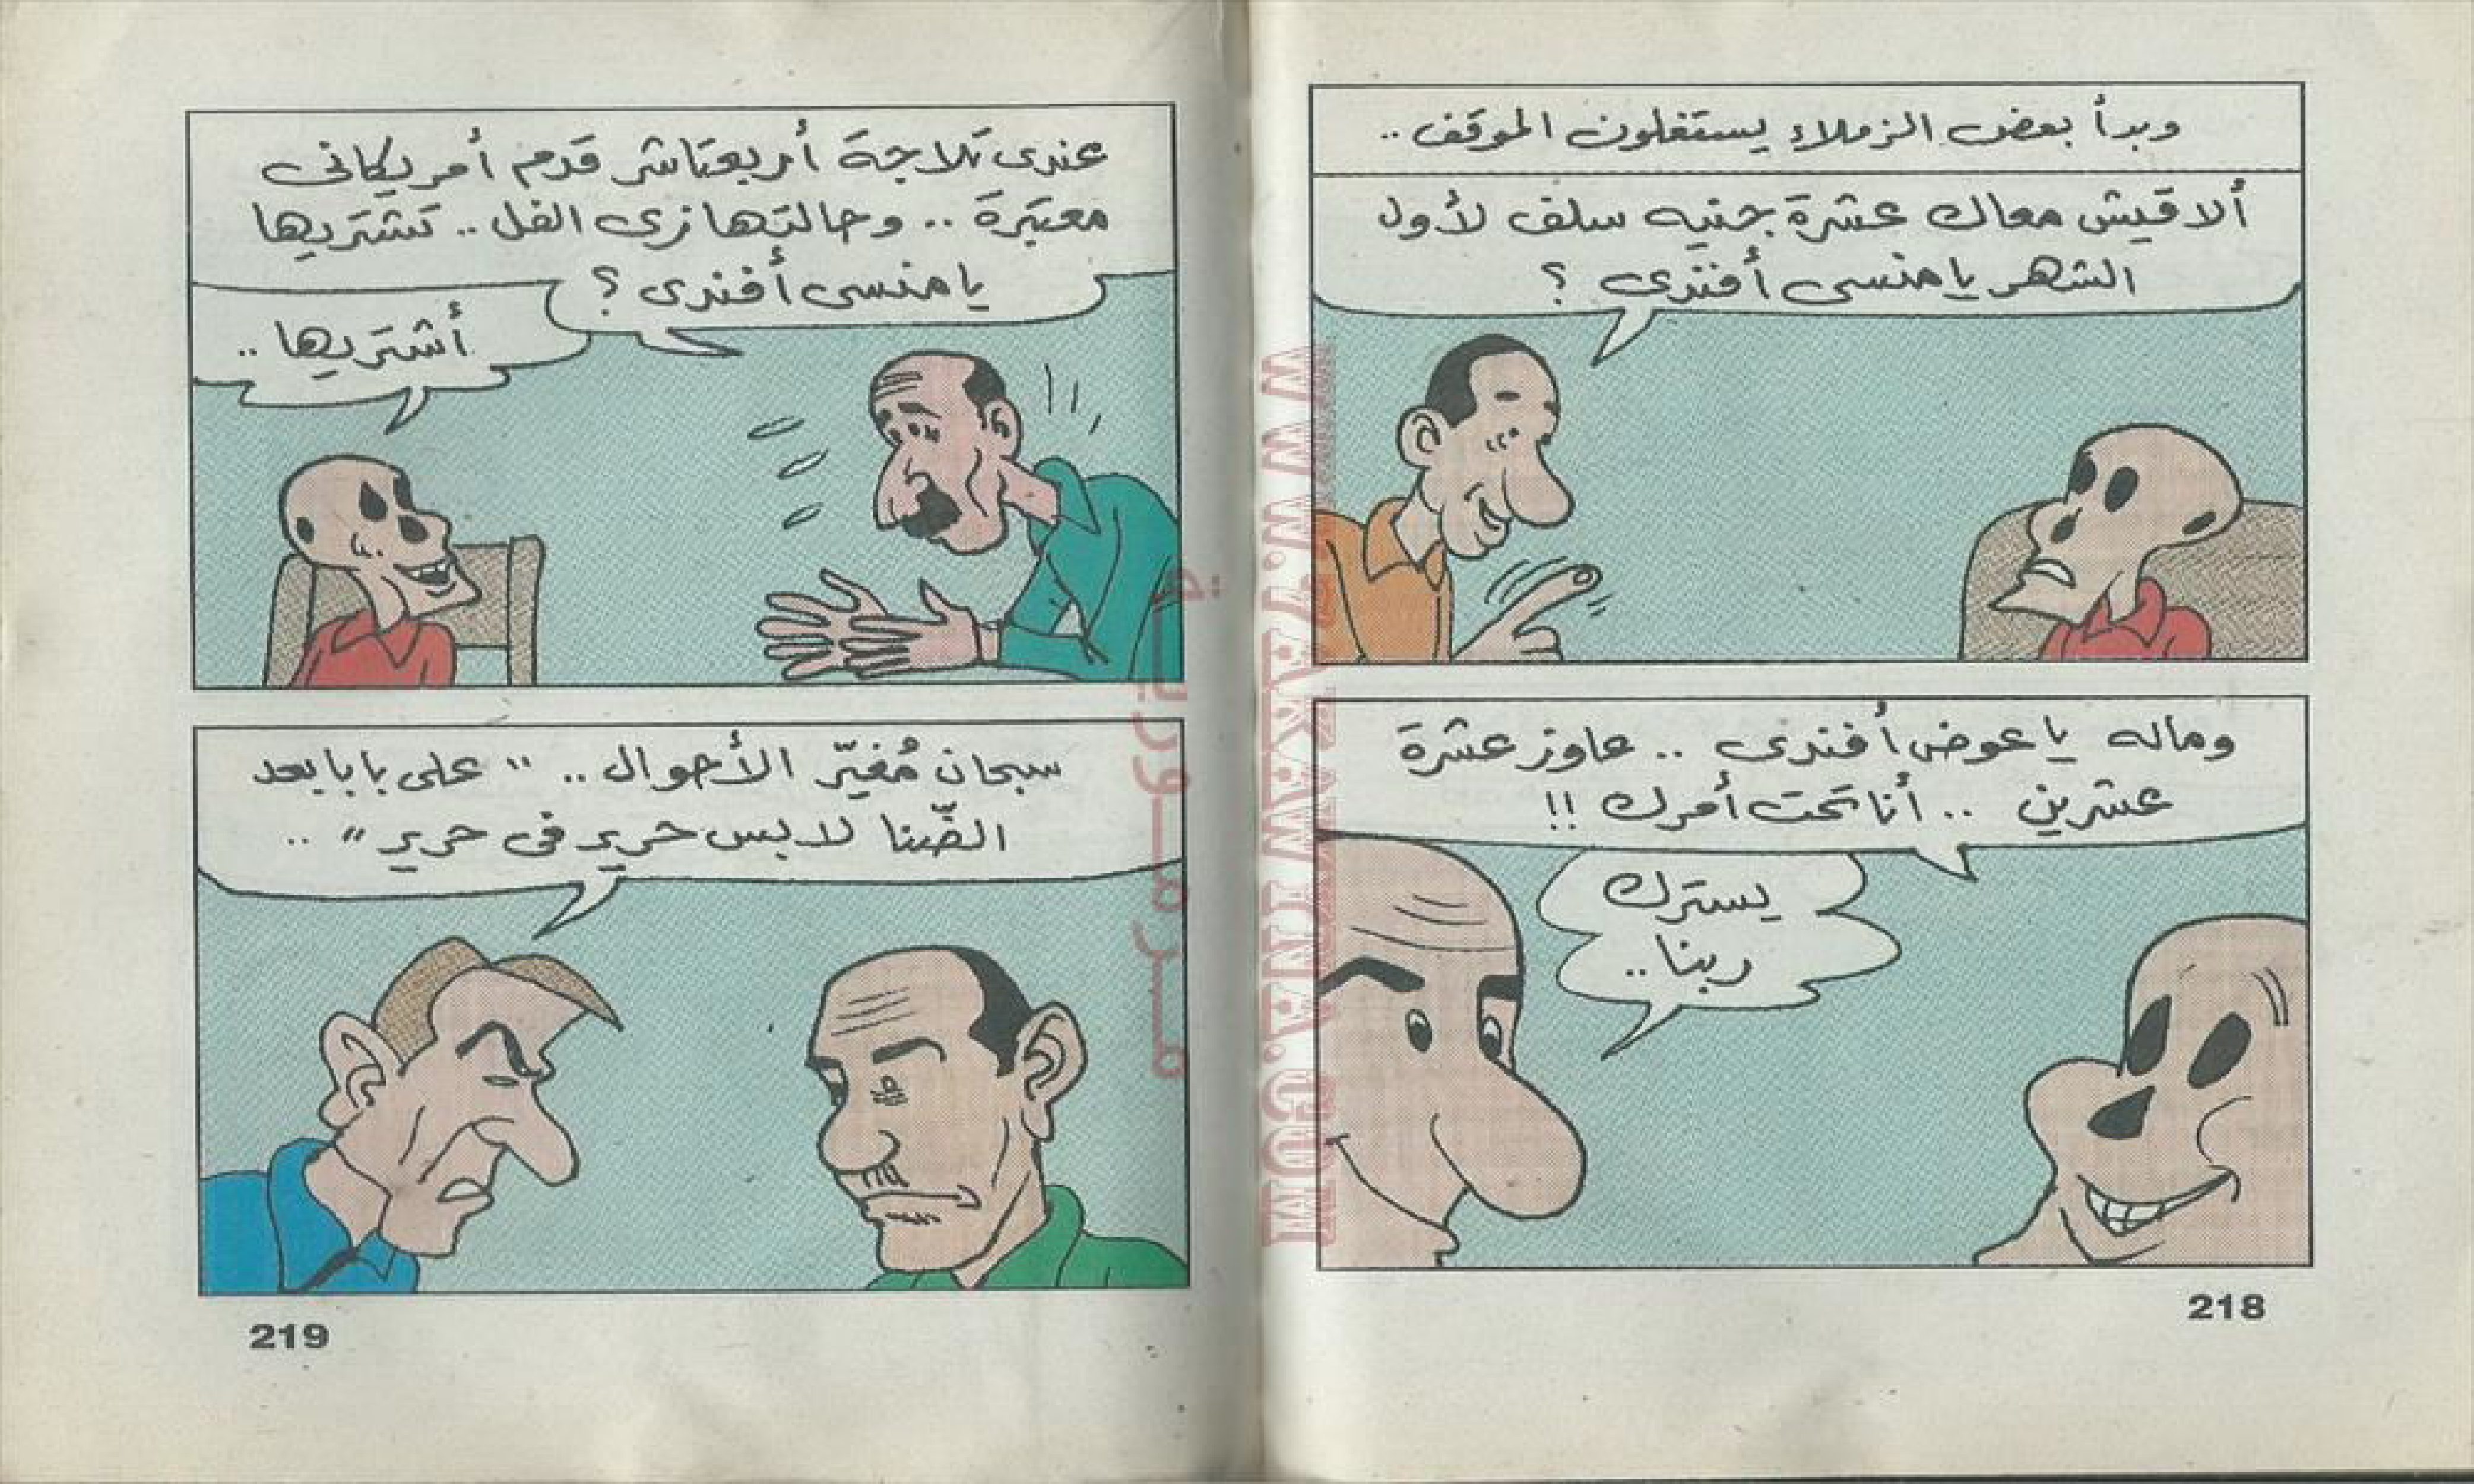 وبدأ بعض الزملاء يستغلون الموقف ..
ألاقيش معاك عشرة جنيه سلف لأول
الشهر يا منسى أفندى ؟
وماله يا عوض أفندى .. عاوز عشرة
عشرين .. أنا تحت أمرك !!
يسترك
ربنا ..
218
عندى تلاجة أربعتاشر قدم أمريكانى
معتبرة .. وحالتها زى الفل .. تشتريها
يا منسى أفندى ؟
أشتريها ..
سبحان مُغيّر الأحوال .. " على بابا بعد
الضّنا لابس حرير فى حرير " ..
219